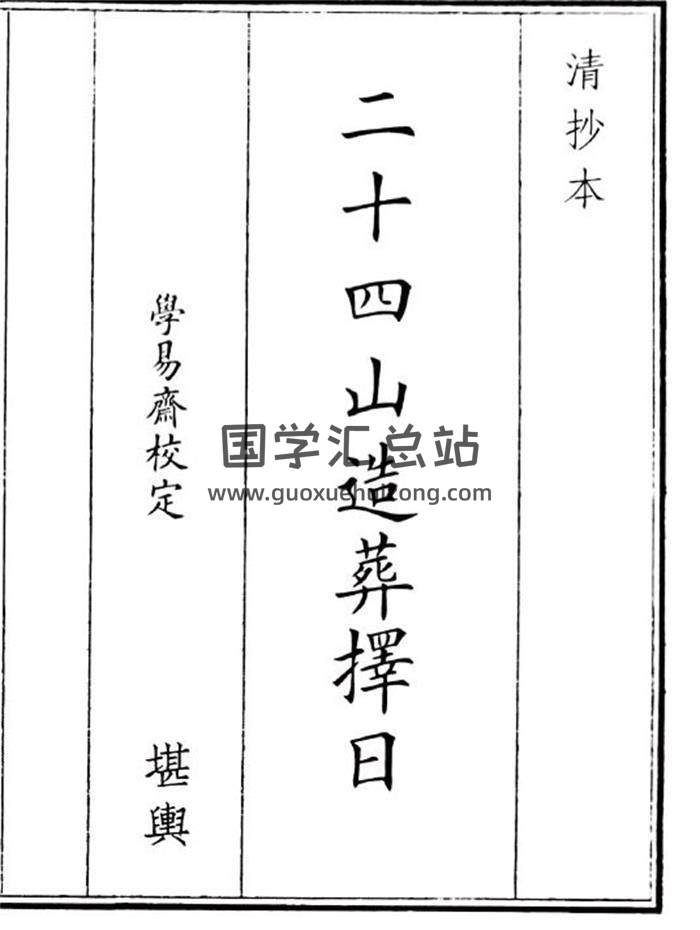 清抄本
二十四山造葬擇日
學易齋校定
堪輿
国学汇总站
www.guoxuehuizong.com